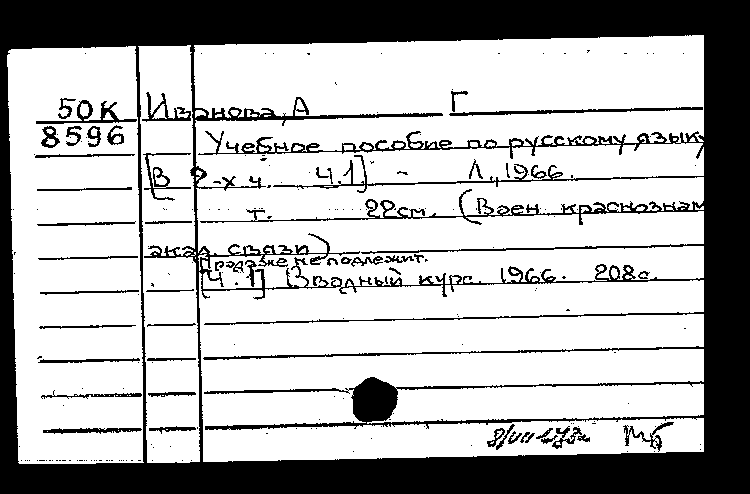 50К Иванова, А Г
8596 Учебное пособие по русскому языку
[В 2-х ч. Ч.1] - Л., 1966.
т. 22см. (Воен краснознам
акад. связи)
Продаже не подлежит.
[Ч.1] Вводный курс. 1966. 208с.
Мб